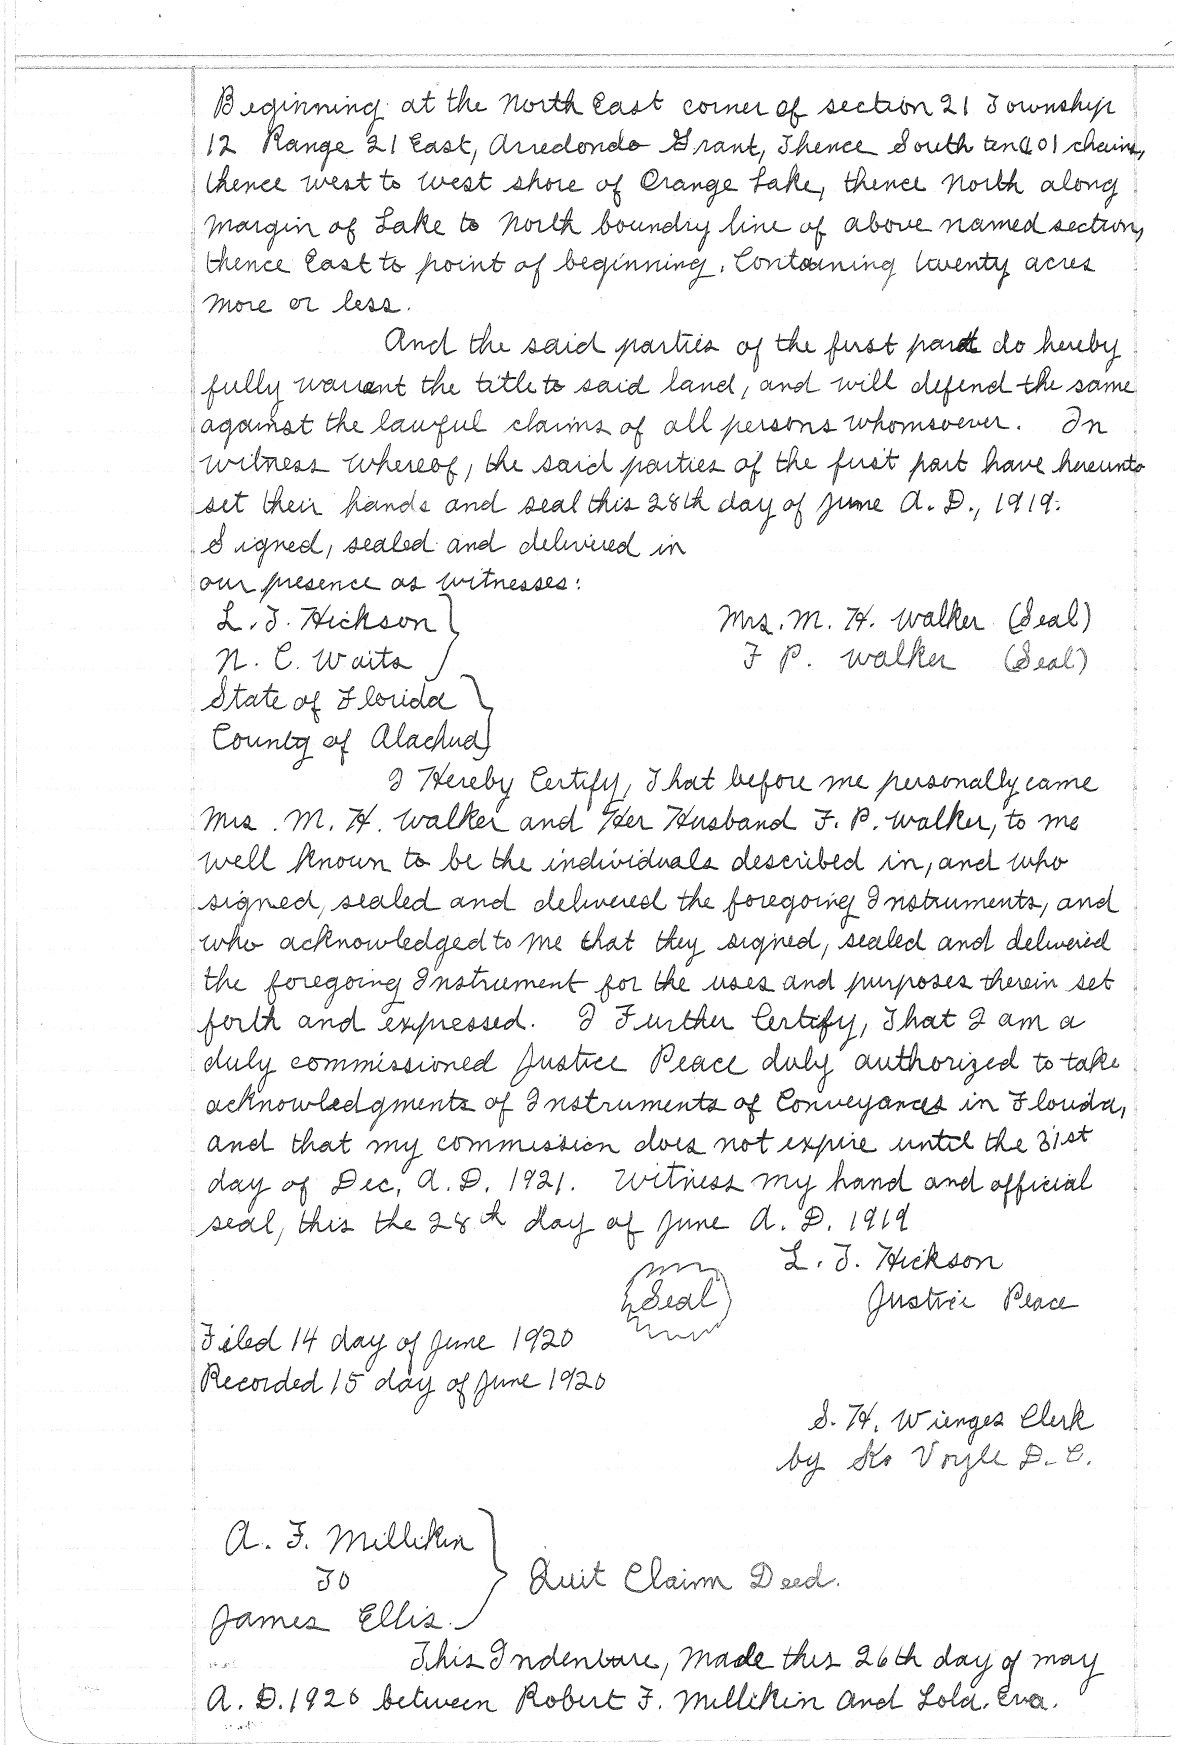 Beginning at the North East corner of section 21 Township
12 Range 21 East, Arredondo Grant, Thence South ten & 01 chains,
thence west to west shore of Orange Lake, thence North along
margin of Lake to North boundry line of above named section,
thence East to point of beginning. Containing twenty acres
more or less.
And the said parties of the first part do hereby
fully warrent the title to said land, and will defend the same
against the lawful claims of all persons whomsoever. In
witness whereof, the said parties of the first part have hereunto
set their hands and seal this 28th day of June A. D., 1919.
Signed, sealed and delivered in
our presence as witnesses:
L. T. Hickson
Mrs. M. H. Walker (Seal)
N. C. Waits
F P. Walker (Seal)
State of Florida
County of Alachua
I Hereby Certify, That before me personally came
Mrs. M. H. Walker and Her Husband F. P. Walker, to me
well known to be the individuals described in, and who
signed, sealed and delivered the foregoing Instruments, and
who acknowledged to me that they signed, sealed and delivered
the foregoing Instrument for the uses and purposes therein set
forth and expressed. I Further Certify, That I am a
duly commissioned Justice Peace duly authorized to take
acknowledgments of Instruments of Conveyances in Florida,
and that my commission does not expire until the 31st
day of Dec, A. D. 1921. Witness my hand and official
seal, this the 28th day of June A. D. 1919
L. T. Hickson
Seal
Justice Peace
Filed 14 day of June 1920
Recorded 15 day of June 1920
S. H. Wienges Clerk
by Voyle D. C.
A. F. Millikin
TO
Quit Claim Deed.
James Ellis.
This Indenture, Made this 26th day of may
A. D. 1920 between Robert F. Millikin and Lola. Eva.